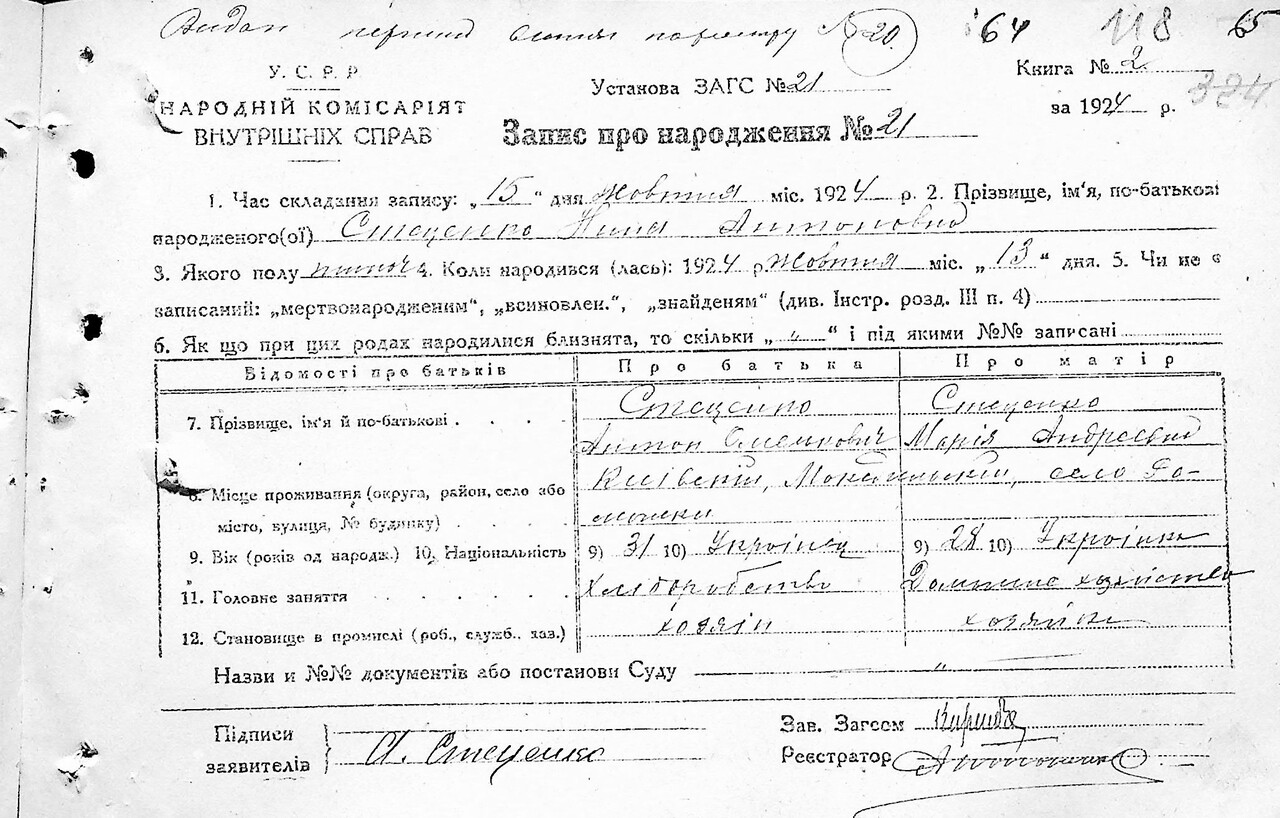 Видан перший витяг по реєстру № 20 64 118 65
У. С. Р. Р.
НАРОДНІЙ КОМІСАРІЯТ
ВНУТРІШНІХ СПРАВ
Установа ЗАГС № 21
Книга № 2
324
за 1924 р.
Запис про народження № 21
1. Час складання запису: „15" дня Жовтня міс. 1924 р. 2. Прізвище, ім'я, по-батькові
народженого(ої) Стеценко Нина Антоновна
3. Якого полу 4. Коли народився (лась): 1924 р Жовтня міс. „13" дня. 5. Чи не є
записаний: „мертвонародженим", „всиновлен.", „знайденям" (див. Інстр. розд. III п. 4)
6. Як що при цих родах народилися близнята, то скільки „ " " і під якими №№ записані
Відомості про батьків Про батька Про матір
7. Прізвище, ім'я й по-батькові . . . . Стеценко Стеценко
Антон Марія Андреевна
8. Місце проживання (округа, район, село або Київський, село
місто, вулиця, № будинку) . . . .
9. Вік (років од народж.) 10. Національність 9) 31 10) Українец 9) 28 10) Українка
11. Головне заняття . . . . . . Хліборобство Домашнє хозяйство
12. Становище в промислі (роб., служб., хаз.) хозяін хозяйка
Назви и №№ документів або постанови Суду "
Підписи
заявителів
А. Стеценко
Зав. Загсом
Реєстратор